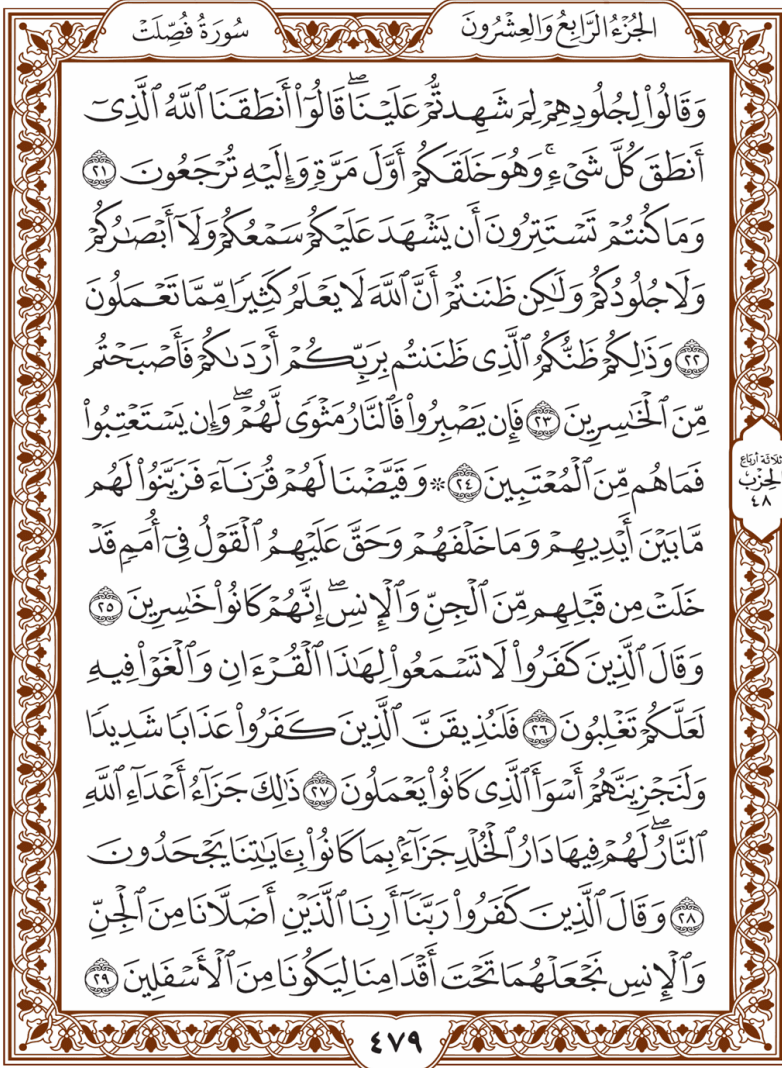 سُورَةُ فُصِّلَتْ
الجُزْءُ الرَّابِعُ وَالعِشْرُونَ
وَقَالُوا۟ لِجُلُودِهِمْ لِمَ شَهِدتُّمْ عَلَيْنَا ۖ قَالُوٓا۟ أَنطَقَنَا ٱللَّهُ ٱلَّذِىٓ
أَنطَقَ كُلَّ شَىْءٍ ۚ وَهُوَ خَلَقَكُمْ أَوَّلَ مَرَّةٍ وَإِلَيْهِ تُرْجَعُونَ ٢١
وَمَا كُنتُمْ تَسْتَتِرُونَ أَن يَشْهَدَ عَلَيْكُمْ سَمْعُكُمْ وَلَآ أَبْصَـٰرُكُمْ
وَلَا جُلُودُكُمْ وَلَـٰكِن ظَنَنتُمْ أَنَّ ٱللَّهَ لَا يَعْلَمُ كَثِيرًا مِّمَّا تَعْمَلُونَ
٢٢ وَذَٰلِكُمْ ظَنُّكُمُ ٱلَّذِى ظَنَنتُم بِرَبِّكُمْ أَرْدَىٰكُمْ فَأَصْبَحْتُم
مِّنَ ٱلْخَـٰسِرِينَ ٢٣ فَإِن يَصْبِرُوا۟ فَٱلنَّارُ مَثْوًى لَّهُمْ ۖ وَإِن يَسْتَعْتِبُوا۟
فَمَا هُم مِّنَ ٱلْمُعْتَبِينَ ٢٤ ۞ وَقَيَّضْنَا لَهُمْ قُرَنَآءَ فَزَيَّنُوا۟ لَهُم
مَّا بَيْنَ أَيْدِيهِمْ وَمَا خَلْفَهُمْ وَحَقَّ عَلَيْهِمُ ٱلْقَوْلُ فِىٓ أُمَمٍ قَدْ
خَلَتْ مِن قَبْلِهِم مِّنَ ٱلْجِنِّ وَٱلْإِنسِ ۖ إِنَّهُمْ كَانُوا۟ خَـٰسِرِينَ ٢٥
وَقَالَ ٱلَّذِينَ كَفَرُوا۟ لَا تَسْمَعُوا۟ لِهَـٰذَا ٱلْقُرْءَانِ وَٱلْغَوْا۟ فِيهِ
لَعَلَّكُمْ تَغْلِبُونَ ٢٦ فَلَنُذِيقَنَّ ٱلَّذِينَ كَفَرُوا۟ عَذَابًا شَدِيدًا
وَلَنَجْزِيَنَّهُمْ أَسْوَأَ ٱلَّذِى كَانُوا۟ يَعْمَلُونَ ٢٧ ذَٰلِكَ جَزَآءُ أَعْدَآءِ ٱللَّهِ
ٱلنَّارُ ۖ لَهُمْ فِيهَا دَارُ ٱلْخُلْدِ ۖ جَزَآءًۢ بِمَا كَانُوا۟ بِـَٔايَـٰتِنَا يَجْحَدُونَ
٢٨ وَقَالَ ٱلَّذِينَ كَفَرُوا۟ رَبَّنَآ أَرِنَا ٱلَّذَيْنِ أَضَلَّانَا مِنَ ٱلْجِنِّ
وَٱلْإِنسِ نَجْعَلْهُمَا تَحْتَ أَقْدَامِنَا لِيَكُونَا مِنَ ٱلْأَسْفَلِينَ ٢٩
ثلاثة أرباع
الحِزْب
٤٨
٤٧٩